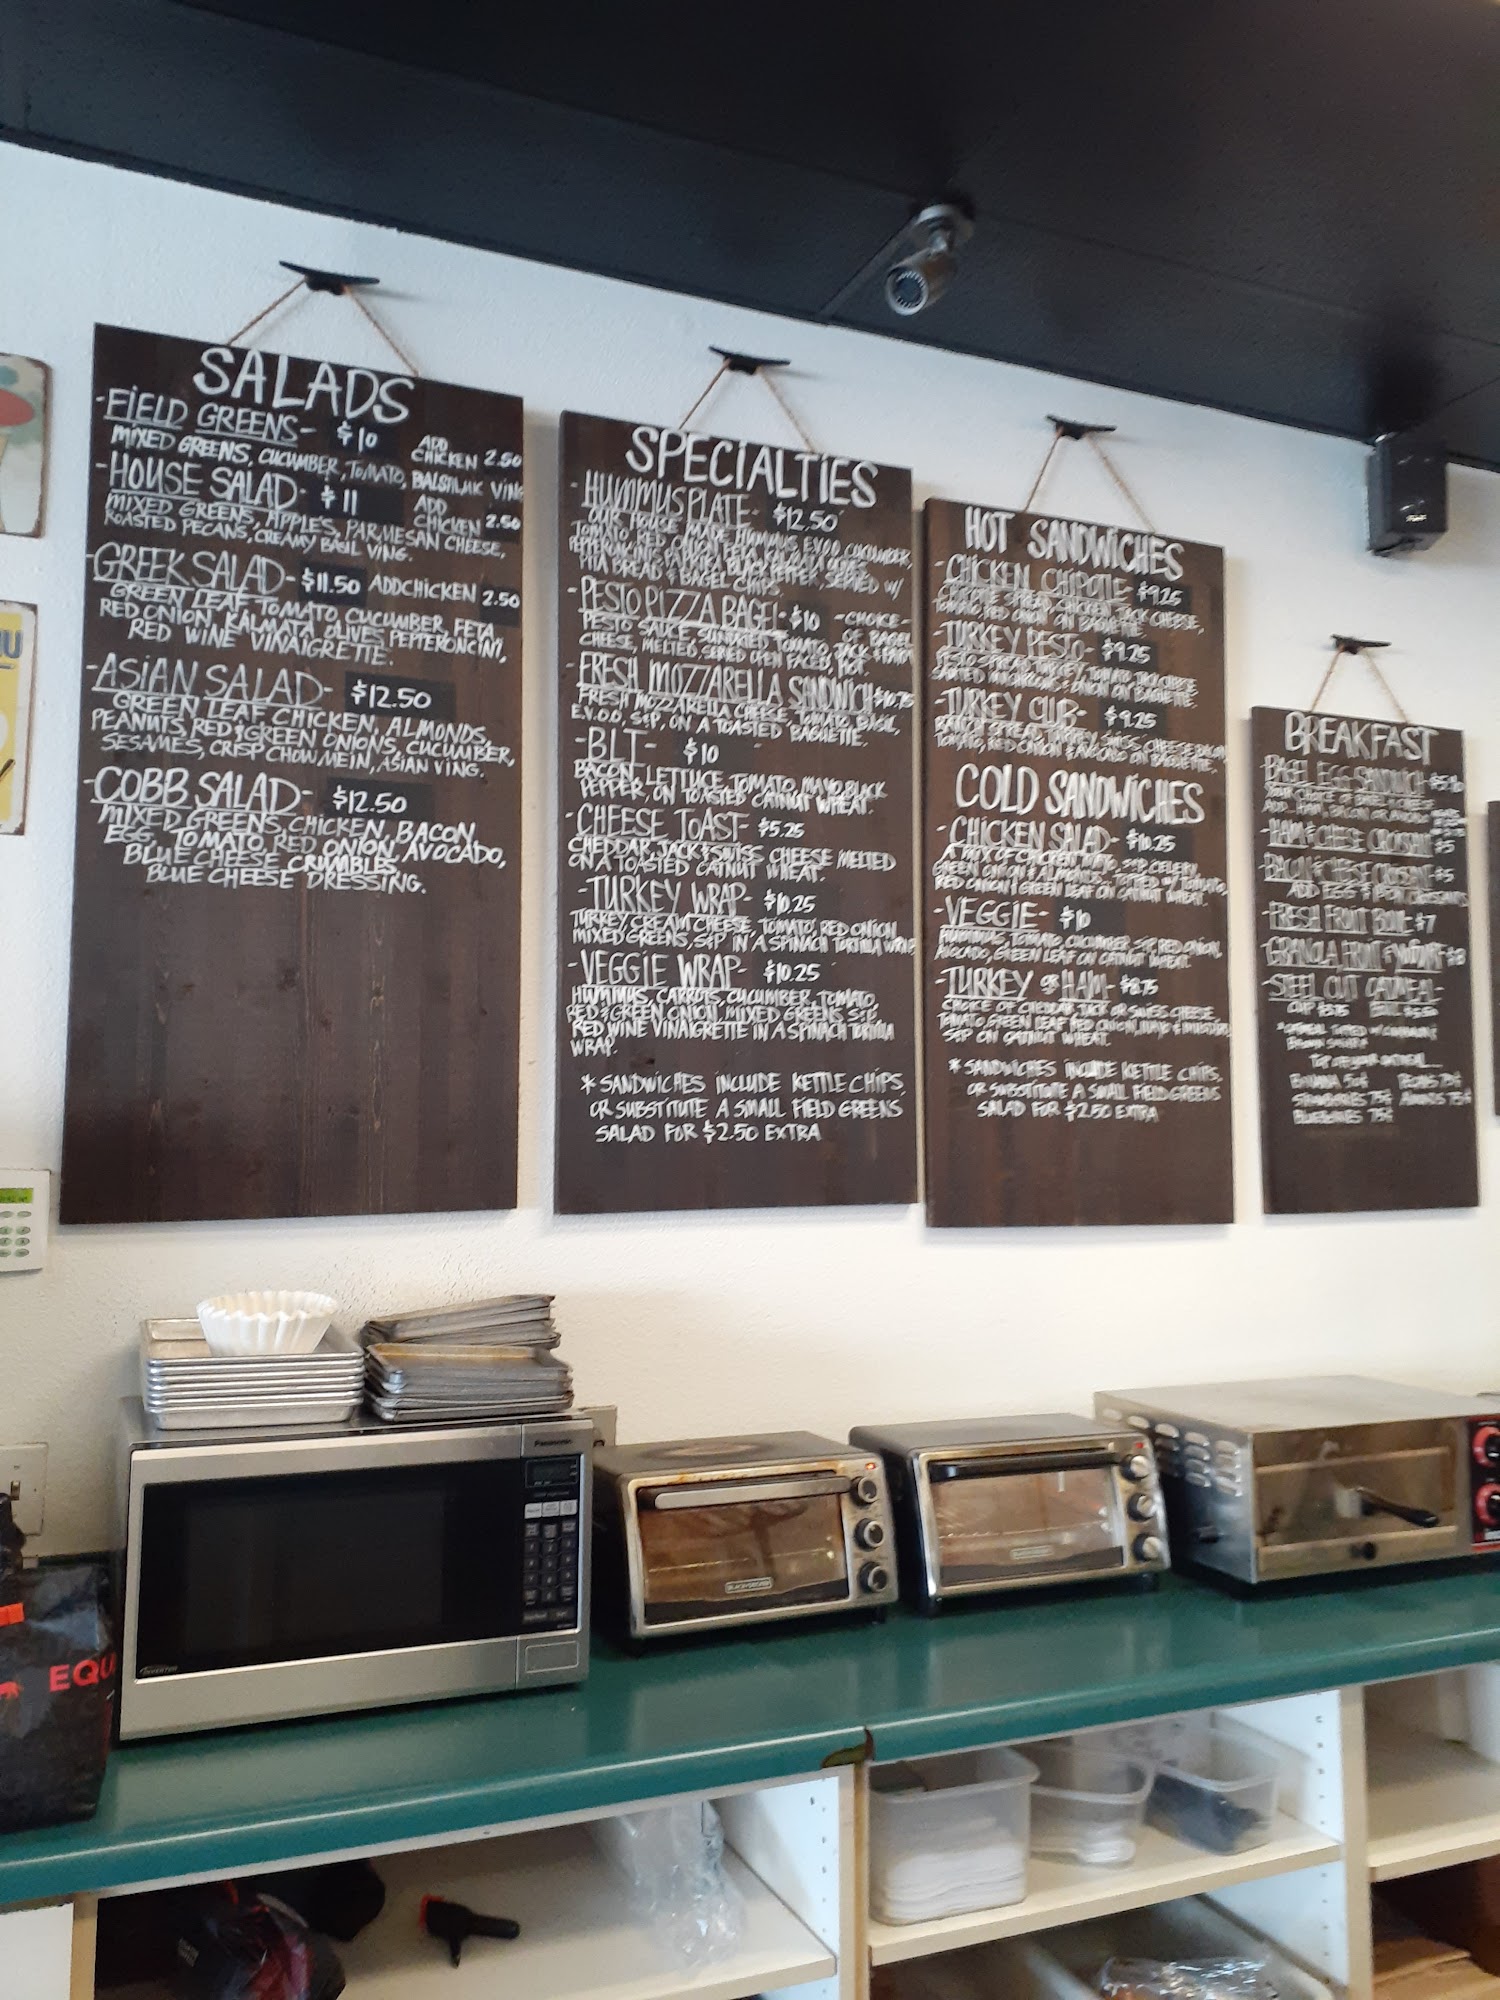 SALADS
-FIELD GREENS- $10 ADD CHICKEN 2.50
MIXED GREENS, CUCUMBER, TOMATO, BALSAMIC VING
-HOUSE SALAD- $11 ADD CHICKEN 2.50
MIXED GREENS, APPLES, PARMESAN CHEESE,
ROASTED PECANS, CREAMY BASIL VING.
-GREEK SALAD- $11.50 ADD CHICKEN 2.50
GREEN LEAF, TOMATO, CUCUMBER, FETA,
RED ONION, KALMATA OLIVES, PEPPERONCINI,
RED WINE VINAIGRETTE.
-ASIAN SALAD- $12.50
GREEN LEAF, CHICKEN, ALMONDS,
PEANUTS, RED & GREEN ONIONS, CUCUMBER,
SESAMES, CRISP CHOW MEIN, ASIAN VING.
-COBB SALAD- $12.50
MIXED GREENS, CHICKEN, BACON,
EGG, TOMATO, RED ONION, AVOCADO,
BLUE CHEESE CRUMBLES,
BLUE CHEESE DRESSING.
SPECIALTIES
-HUMMUS PLATE- $12.50
OUR HOUSE MADE HUMMUS, E.V.O.O, CUCUMBER
TOMATO, RED ONION, FETA, KALMATA OLIVES,
PEPPERONCINIS, PAPRIKA, BLACK PEPPER, SERVED W/
PITA BREAD & BAGEL CHIPS.
-PESTO PIZZA BAGEL- $10 -CHOICE-
PESTO SAUCE, SUNDRIED TOMATO, JACK & PARM OF BAGEL
CHEESE, MELTED, SERVED OPEN FACED, HOT.
-FRESH MOZZARELLA SANDWICH $10.75
FRESH MOZZARELLA CHEESE, TOMATO, BASIL,
E.V.O.O, S&P, ON A TOASTED BAGUETTE.
-BLT- $10
BACON, LETTUCE, TOMATO, MAYO, BLACK
PEPPER, ON TOASTED OATNUT WHEAT.
-CHEESE TOAST- $5.25
CHEDDAR, JACK & SWISS CHEESE MELTED
ON A TOASTED OATNUT WHEAT.
-TURKEY WRAP- $10.25
TURKEY, CREAM CHEESE, TOMATO, RED ONION
MIXED GREENS, S&P IN A SPINACH TORTILLA WRAP
-VEGGIE WRAP- $10.25
HUMMUS, CARROTS, CUCUMBER, TOMATO,
RED & GREEN ONION, MIXED GREENS, S&P,
RED WINE VINAIGRETTE IN A SPINACH TORTILLA
WRAP.
* SANDWICHES INCLUDE KETTLE CHIPS,
OR SUBSTITUTE A SMALL FIELD GREENS
SALAD FOR $2.50 EXTRA
HOT SANDWICHES
-CHICKEN CHIPOTLE- $9.25
CHIPOTLE SPREAD, CHICKEN, JACK CHEESE,
TOMATO, RED ONION ON BAGUETTE.
-TURKEY PESTO- $9.25
PESTO SPREAD, TURKEY, TOMATO, JACK CHEESE
SAUTÉED MUSHROOMS & ONION ON BAGUETTE.
-TURKEY CLUB- $9.25
RANCH SPREAD, TURKEY, SWISS CHEESE, BACON,
TOMATO, RED ONION & AVOCADO ON BAGUETTE.
COLD SANDWICHES
-CHICKEN SALAD- $10.25
A MIX OF CHICKEN, MAYO, S&P, CELERY,
GREEN ONION & ALMONDS, TOPPED W/ TOMATO,
RED ONION & GREEN LEAF ON OATNUT WHEAT.
-VEGGIE- $10
HUMMUS, TOMATO, CUCUMBER, S&P, RED ONION,
AVOCADO, GREEN LEAF ON OATNUT WHEAT.
-TURKEY OR HAM- $8.75
CHOICE OF CHEDDAR, JACK OR SWISS CHEESE,
TOMATO, GREEN LEAF, RED ONION, MAYO & MUSTARD,
S&P ON OATNUT WHEAT.
* SANDWICHES INCLUDE KETTLE CHIPS,
OR SUBSTITUTE A SMALL FIELD GREENS
SALAD FOR $2.50 EXTRA
BREAKFAST
-BAGEL EGG SANDWICH-
YOUR CHOICE OF BAGEL & CHEESE
ADD HAM, BACON, OR AVOCADO
-HAM & CHEESE CROISSANT $5
-BACON & CHEESE CROISSANT $5
ADD EGG
-FRESH FRUIT BOWL- $7
-GRANOLA, FRUIT & YOGURT- $8
-STEEL CUT OATMEAL-
CUP BOWL
*OATMEAL TOPPED W/ CINNAMON &
BROWN SUGAR
TOP OFF YOUR OATMEAL....
BANANA 50¢ PECANS 75¢
STRAWBERRIES 75¢ ALMONDS 75¢
BLUEBERRIES 75¢
Panasonic
INVERTER
BLACK+DECKER
EQU